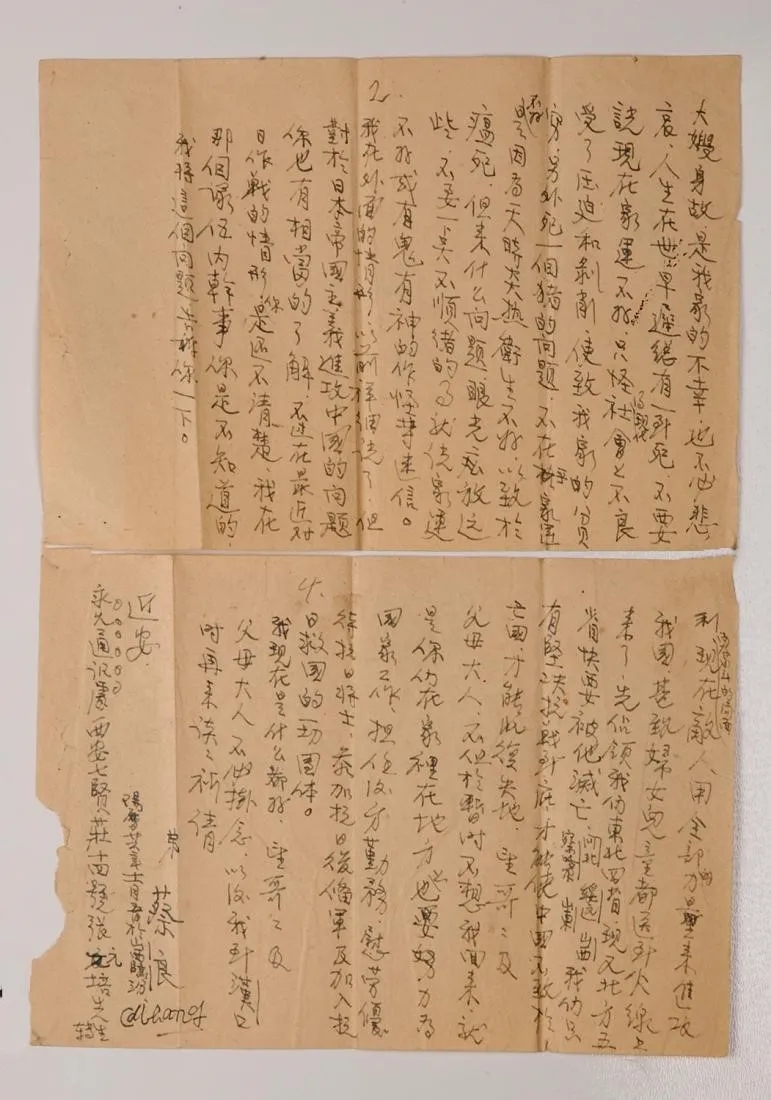 大嫂身故,是我家的不幸,也不必悲
哀,人生在世早遲總有一到死,不要
說現在家運不好,只怪社會上不良
受了压迫和剝削,使致我家的貧
窮,另外死一個猪的问題,不在乎家運
不好是因为天時炎热衛生不好,以致於
瘟死,但末什么问題眼光應放远
些,不要一点不順緒的为就说家運
不好或有鬼有神的作怪等迷信。
2.
我在外面的情形,以前祥细说了,但
對於日本帝國主義進攻中國的问題
你也有相當的了解,不过在最近对
日作戰的情形,你是还不清楚,我在
那個隊伍内幹事你是不知道的,
我将這個问題告訴你一下。
利,現在敵人,用全部力量来進攻
我國甚致婦女児童都送到火線上
来了,先佔領我们東北四省,現又北方五
省快要被他滅亡,河北 綏远 山西 察哈 山東 我们只
有堅决抗战到底才能使中國不致於
亡國,才能恢復失地,望哥哥及
父母大人,不但於暫时不想我回来,就
是你们在家裡在地方也要努力為
國家工作,担任後方勤務,慰劳優
待抗日将士,参加抗日後備軍及加入抗
日救國的一切團体。
九.
我現在是什么都好,望哥哥及
父母大人不必掛念,以後我到漢口
时再来谈谈祈请
近安.
弟 蔡良
陽曆廿六年十一月 於山西臨汾
永久通讯處西安七賢莊一號張元培先生
轉